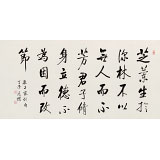 芝蘭生於
深林不以
無人而不
芳君子脩
身立德不
為困而改
節